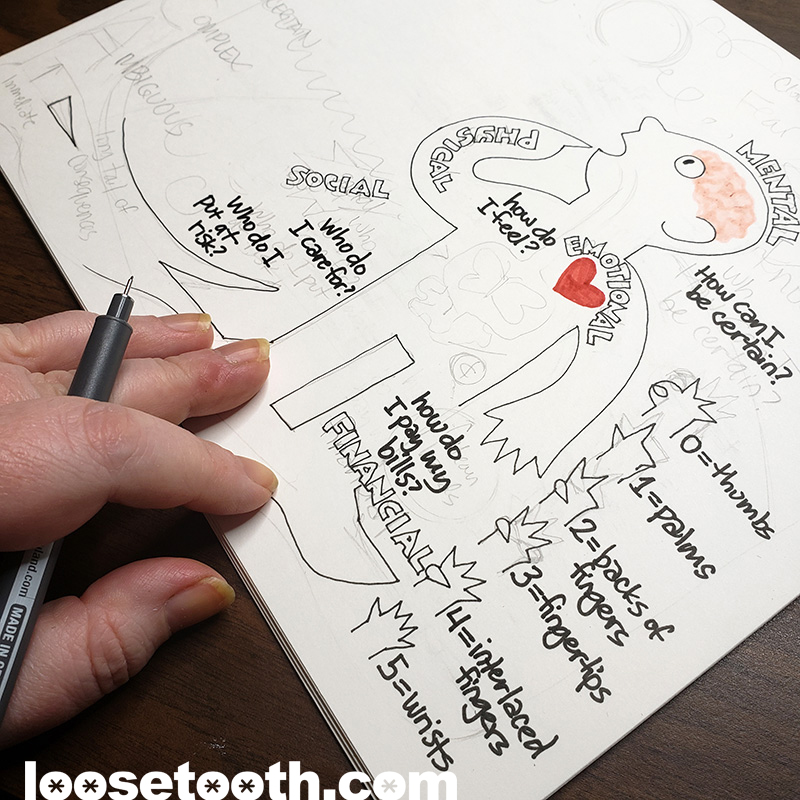 CERTAIN
COMPLEX
AMBIGUOUS
Immediate
long tail of
consequences
PHYSICAL
MENTAL
SOCIAL
Who do I
put at
risk?
Who do
I care for?
how do
I feel?
EMOTIONAL
How can I
be certain?
be certain?
how do
I pay my
bills?
FINANCIAL
0=thumbs
1=palms
2=backs of
fingers
3=fingertips
4=interlaced
fingers
5=wrists
land.com
MADE IN
loosetooth.com